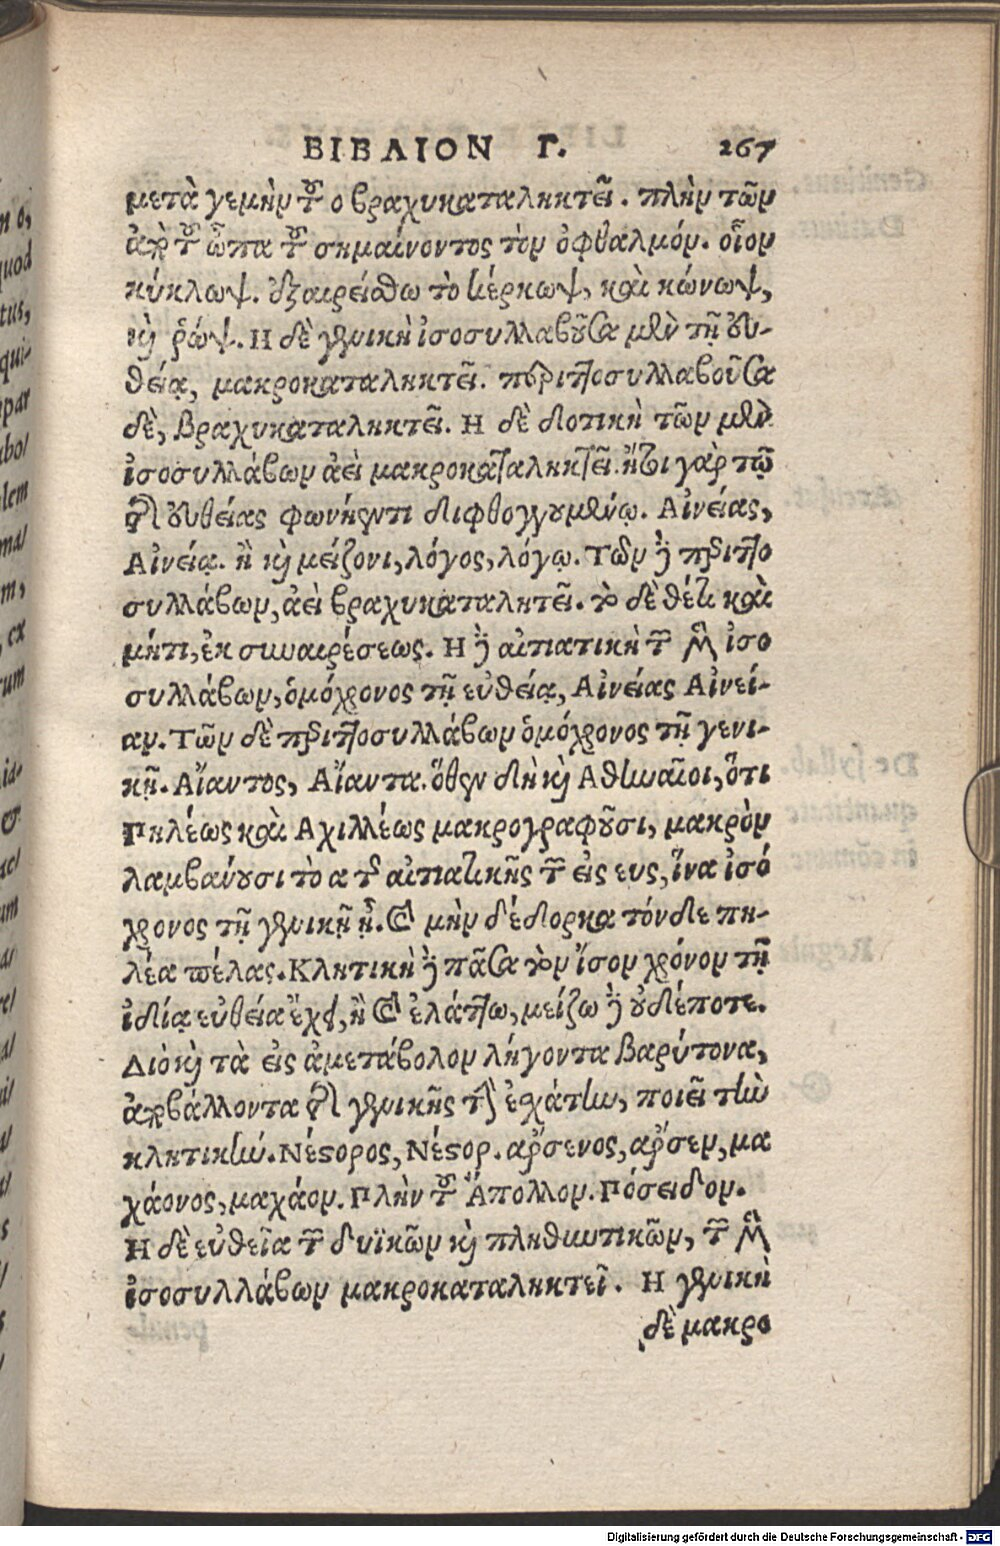 ΒΙΒΛΙΟΝ Γ. 267
μετὰ γεμὴν τοῦ ο βραχυκαταληκτεῖ. πλὴν τῶν
ἀπὸ τοῦ ὦπα τοῦ σημαίνοντος τὸν ὀφθαλμόν. οἷον
κύκλωψ. ἐξαιρείσθω τὸ κέρκωψ, καὶ κώνωψ,
καὶ ῥώψ. Η δὲ γενικὴ ἰσοσυλλαβοῦσα μὲν τῇ εὐ-
θείᾳ, μακροκαταληκτεῖ. περιττοσυλλαβοῦσα
δὲ, βραχυκαταληκτεῖ. Η δὲ δοτικὴ τῶν μὲν
ἰσοσυλλάβων ἀεὶ μακροκαταληκτεῖ. ἤτοι γὰρ τῷ
τῆς εὐθείας φωνήεντι διφθογγουμένῳ. Αἰνείας,
Αἰνείᾳ. ἢ καὶ μείζονι, λόγος, λόγῳ. Τῶν δὲ περιττο
συλλάβων, ἀεὶ βραχυκαταλητεῖ. τὸ δὲ θέτι καὶ
μήτι, ἐκ συναιρέσεως. Η δὲ αἰτιατικὴ τῶν μὲν ἰσο
συλλάβων, ὁμόχρονος τῇ εὐθείᾳ, Αἰνείας Αἰνεί-
αν. Τῶν δὲ περιττοσυλλάβων ὁμόχρονος τῇ γενι-
κῇ. Αἴαντος, Αἴαντα. ὅθεν δὴ καὶ Αθηναῖοι, ὅτι
Πηλέως καὶ Αχιλλέως μακρογραφοῦσι, μακρὸν
λαμβάνουσι τὸ α τῆς αἰτιατικῆς τῶν εἰς ευς, ἵνα ἰσό
χρονος τῇ γενικῇ ᾖ. οὐ μὴν δέδορκα τόνδε πη-
λέα πέλας. Κλητικὴ δὲ πᾶσα τὸν ἴσον χρόνον τῇ
ἰδίᾳ εὐθείᾳ ἔχει, ἢ οὐ ἐλάττω, μείζω δὲ οὐδέποτε.
Διὸ καὶ τὰ εἰς ἀμετάβολον λήγοντα βαρύτονα,
ἀποβάλλοντα τῆς γενικῆς τὴν ἐσχάτην, ποιεῖ τὴν
κλητικήν. Νέστορος, Νέστορ. αῤῥσενος, αῤῥσεν, μα
χάονος, μαχάον. Πλὴν τοῦ Ἄπολλον. Πόσειδον.
Η δὲ εὐθεῖα τῶν δυϊκῶν καὶ πληθυντικῶν, τῶν μὲν
ἰσοσυλλάβων μακροκαταληκτεῖ. Η γενικὴ
δὲ μακρο
Digitalisierung gefördert durch die Deutsche Forschungsgemeinschaft - DFG